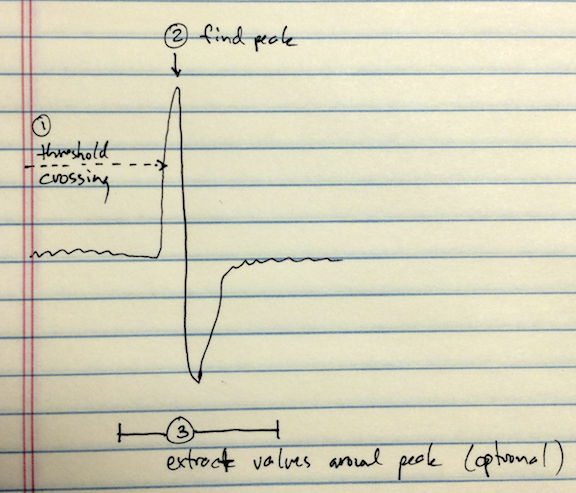 ② find peak
①
threshold
crossing
③
extract values around peak (optional)